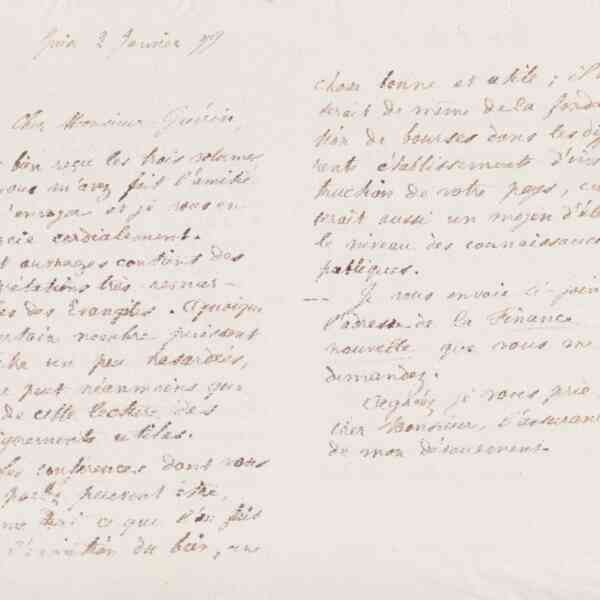 2 Janvier
Cher Monsieur Guérin,
bien reçu les trois volumes
vous m'avez fait l'amitié
envoyer et je vous en
cie cordialement.
ouvrages contient des
prétations très remar-
les des Evangiles. Quoique
certain nombre puissent
être un peu hasardées,
ne peut néanmoins que
de cette lecture des
ignements utiles.
Les conférences dont vous
parlé peuvent être,
me ce que l'on fait
du bien, une
chose bonne et utile ; il
serait de même de la fonda
tion de bourses dans les dif
rents établissement d'ins
truction de votre pays, ce
serait aussi un moyen d'él
le niveau des connaissances
publiques.
— Je vous envoie ci-join
l'adresse de la Finance
nouvelle que vous me
demandez.
je vous prie
cher Monsieur, l'assurance
de mon dévouement.